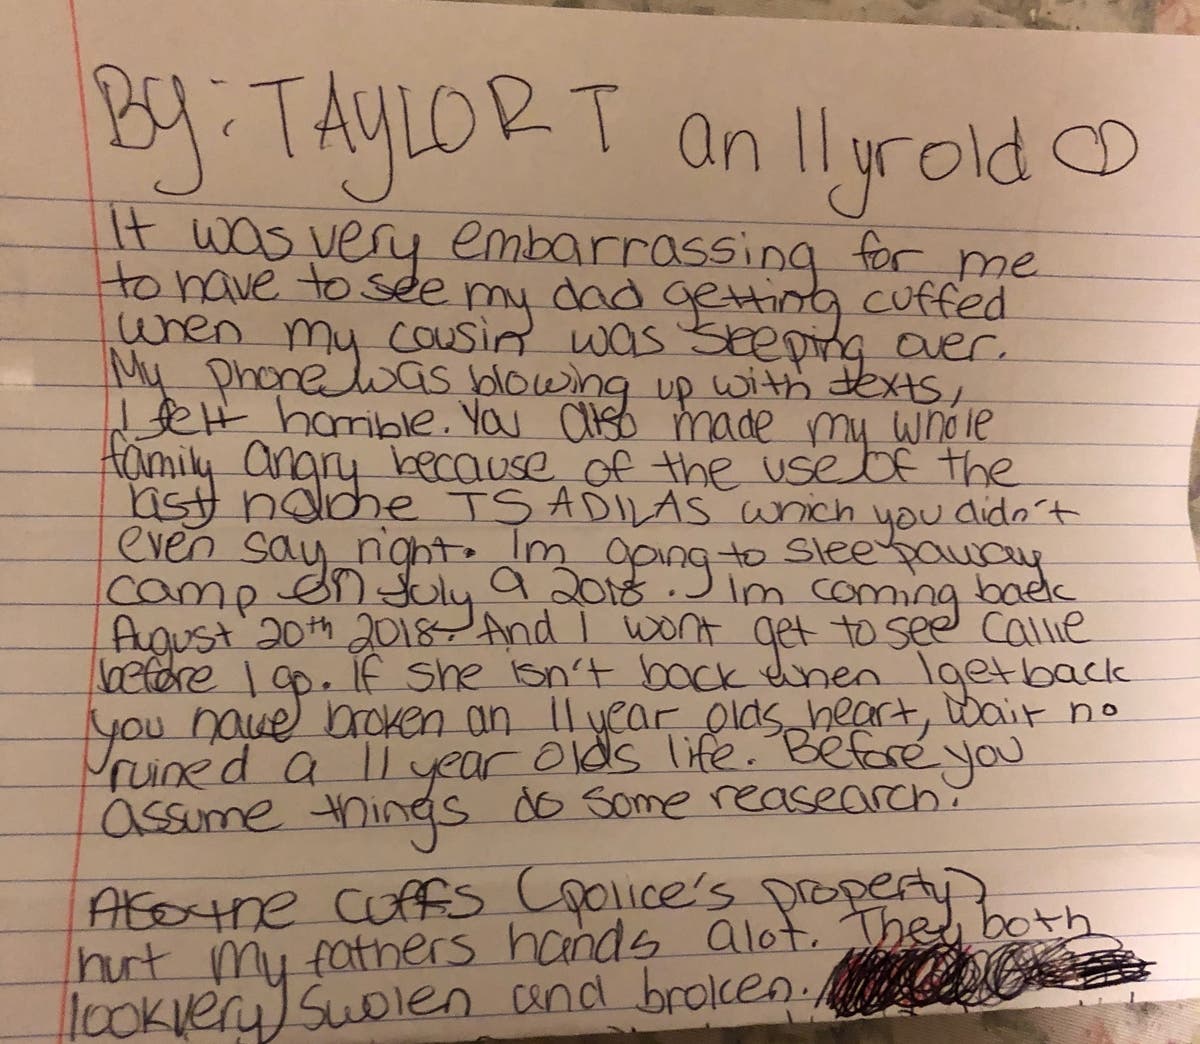 By: TAYLOR T an 11 yr old
It was very embarrassing for me
to have to see my dad getting cuffed
when my cousin was seeping over.
My phone was blowing up with texts,
I felt horrible. You also made my whole
family angry because of the use of the
last name TSADILAS which you didn't
even say right. Im going to sleepaway
camp on July 9 2018. Im coming back
August 20th 2018. And I wont get to see Callie
before I go. If she isn't back when I get back
you have broken an 11 year olds heart, Wait no
ruined a 11 year olds life. Before you
assume things do some reasearch.
Also the cuffs (police's property)
hurt my fathers hands alot. They both
look very swolen and broken.